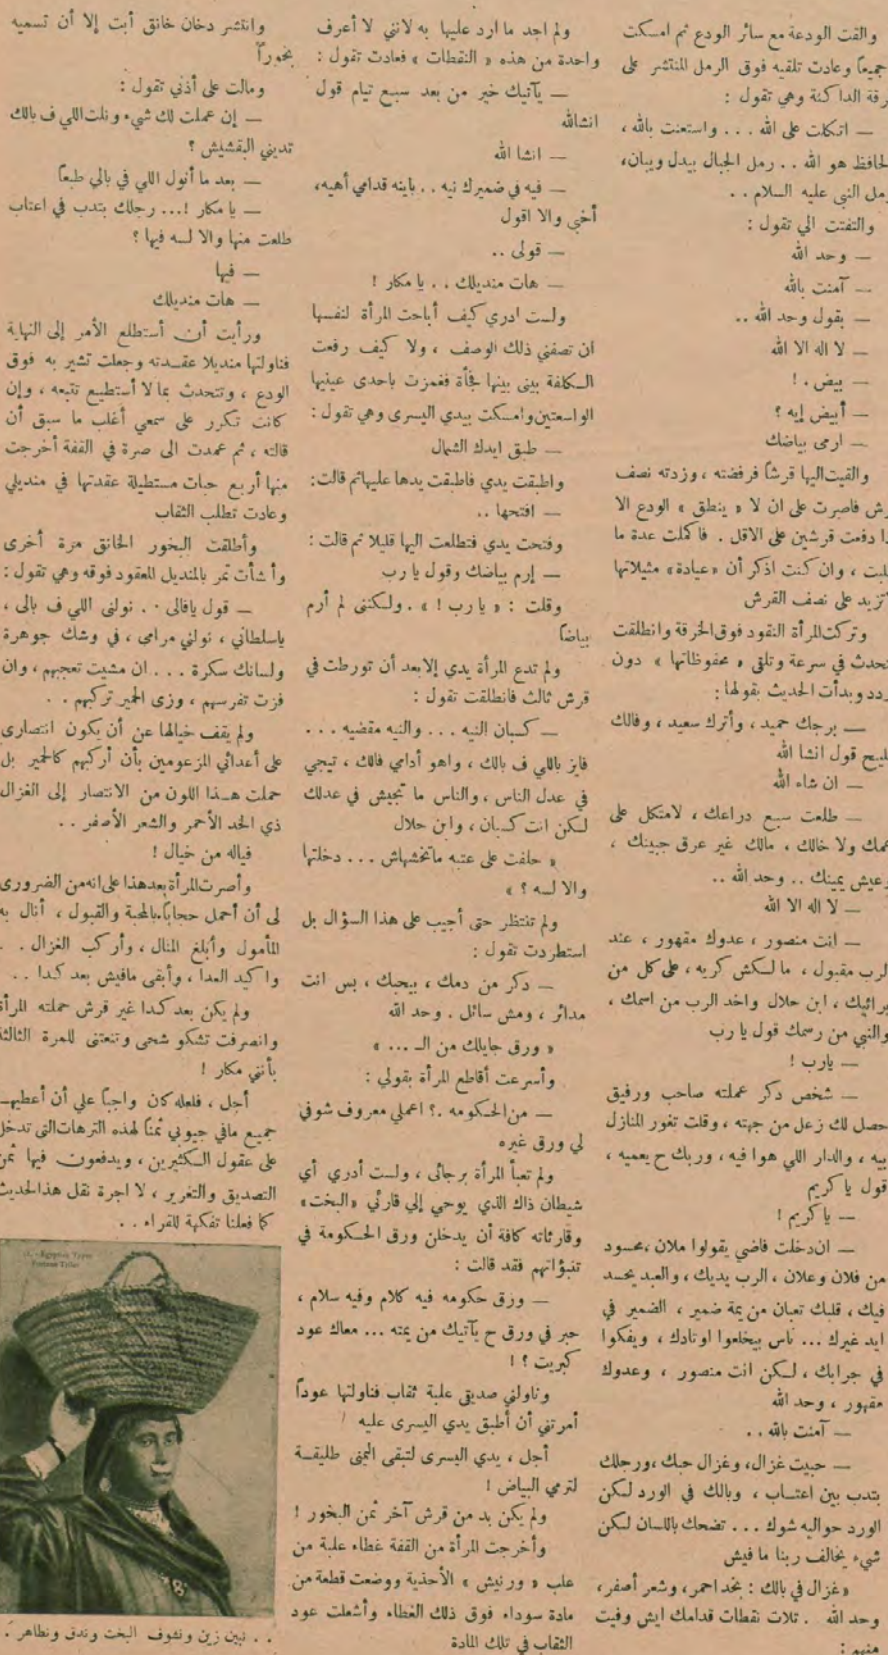 والقت الودعة مع سائر الودع ثم امسكت
جميعاً وعادت تلقيه فوق الرمل المنتشر على
رقة الداكنة وهي تقول :
— اتكلت على الله . . . واستعنت بالله ،
لحافظ هو الله . . رمل الجبال بيدل ويبان،
رمل النبي عليه السلام . .
والتفتت الي تقول :
— وحد الله
— آمنت بالله
— بقول وحد الله ..
— لا اله الا الله
— بيض . !
— أبيض إيه ؟
— ارمى بياضك
والقيت اليها قرشاً فرفضته ، وزدته نصف
رش فاصرت على ان لا « ينطق » الودع الا
ذا دفعت قرشين على الاقل . فاكملت عدة ما
لبت ، وان كنت اذكر أن «عيادة» مثيلاتها
اتزيد على نصف القرش
وتركت المرأة النقود فوق الخرقة وانطلقت
تحدث في سرعة وتلقى « محفوظاتها » دون
ردد وبدأت الحديث بقولها :
— برجك حميد ، وأترك سعيد ، وفالك
ليح قول انشا الله
— ان شاء الله
— طلعت سبع دراعك ، لامتكل على
عمك ولا خالك ، مالك غير عرق جبينك ،
وعيش يمينك .. وحد الله ..
— لا اله الا الله
— انت منصور ، عدوك مقهور ، عند
الرب مقبول ، مالكش كريه ، على كل من
يرائيك ، ابن حلال واخد الرب من اسمك ،
والنبي من رسمك قول يا رب
— يارب !
— شخص دكر عملته صاحب ورفيق
حصل لك زعل من جهته ، وقلت تغور المنازل
بيه ، والدار اللي هوا فيه ، وربك ح يعميه ،
قول يا كريم
— يا كريم !
— ان دخلت فاضي يقولوا ملان ، محسود
من فلان وعلان ، الرب يديك ، والعبد يحسد
فيك ، قلبك تعبان من يمة ضمير ، الضمير في
ايد غيرك ... ناس بيخلعوا اوتادك ، ويفكوا
في جرابك ، لكن انت منصور ، وعدوك
مقهور ، وحد الله
— آمنت بالله . .
— حبيت غزال، وغزال حبك ،ورجلك
بتدب بين اعتاب ، وبالك في الورد لكن
الورد حواليه شوك ... تضحك باللسان لكن
شيء يخالف ربنا ما فيش
«غزال في بالك : بخد احمر، وشعر أصفر،
وحد الله . تلات نقطات قدامك ايش وفيت
منهم :
ولم اجد ما ارد عليها به لانني لا أعرف
واحدة من هذه « النقطات » فعادت تقول :
— يأتيك خير من بعد سبع تيام قول
انشالله
— انشا الله
— فيه في ضميرك نيه . . باينه قدامي أهيه،
أخبي والا اقول
— قولى ..
— هات منديلك . . يا مكار !
ولست ادري كيف أباحت المرأة لنفسها
ان تصفني ذلك الوصف ، ولا كيف رفعت
الكلفة بيني بينها فجأة فغمزت باحدى عينيها
الواسعتين وامسكت بيدي اليسرى وهي تقول :
— طبق ايدك الشمال
واطبقت يدي فاطبقت يدها عليها ثم قالت:
— افتحها ..
وفتحت يدي فتطلعت اليها قليلا ثم قالت :
— إرم بياضك وقول يا رب
وقلت : « يا رب ! » . ولكنني لم أرم
بياضاً
ولم تدع المرأة يدي إلا بعد أن تورطت في
قرش ثالث فانطلقت تقول :
— كسبان النيه . . . والنيه مقضيه . . .
فايز باللي ف بالك ، واهو أدامي فالك ، تيجي
في عدل الناس ، والناس ما تجيش في عدلك
لكن انت كسبان ، وابن حلال
« حلفت على عتبه ماتخشهاش ... دخلتها
والا لسه ؟ »
ولم تنتظر حتى أجيب على هذا السؤال بل
استطردت تقول :
— دكر من دمك ، بيحبك ، بس انت
مدائر ، ومش سائل . وحد الله
« ورق جايلك من الـ ... »
وأسرعت أقاطع المرأة بقولي :
— من الحكومه .؟ اعملي معروف شوفي
لي ورق غيره
ولم تعبأ المرأة برجائي ، ولست أدري أي
شيطان ذاك الذي يوحي إلي قارئي «البخت»
وقارئاته كافة أن يدخلن ورق الحكومة في
تنبؤاتهم فقد قالت :
— ورق حكومه فيه كلام وفيه سلام ،
حبر في ورق ح يأتيك من يمته ... معاك عود
كبريت ؟ !
وناولني صديقي علبة ثقاب فناولتها عوداً
أمرتني أن أطبق يدي اليسرى عليه
أجل ، يدي اليسرى لتبقى اليمنى طليقة
لترمي البياض !
ولم يكن بد من قرش آخر ثمن البخور !
وأخرجت المرأة من القفة غطاء علبة من
علب « ورنيش » الأحذية ووضعت قطعة من
مادة سوداء فوق ذلك الغطاء وأشعلت عود
الثقاب في تلك المادة
وانتشر دخان خانق أبت إلا أن تسميه
بخوراً
ومالت على أذني تقول :
— إن عملت لك شيء ونلت اللي ف بالك
تديني البقشيش ؟
— بعد ما أنول اللي في بالي طبعاً
— يا مكار !... رجلك بتدب في اعتاب
طلعت منها والا لسه فيها ؟
— فيها
— هات منديلك
ورأيت أن أستطلع الأمر إلى النهاية
فناولتها منديلا عقدته وجعلت تشير به فوق
الودع ، وتتحدث بما لا أستطيع تتبعه ، وإن
كانت تكرر على سمعي أغلب ما سبق أن
قالته ، ثم عمدت الى صرة في القفة أخرجت
منها أربع حبات مستطيلة عقدتها في منديلي
وعادت تطلب الثقاب
وأطلقت البخور الخانق مرة أخرى
وأنشأت تمر بالمنديل المعقود فوقه وهي تقول :
— قول يافالى . . نولنى اللي ف بالى ،
ياسلطاني ، نولني مرامى ، في وشك جوهرة
ولسانك سكرة . . . ان مشيت تعجبهم ، وان
فزت تفرسهم ، وزى الحمير تركبهم . .
ولم يقف خيالها عن أن يكون انتصارى
على أعدائي المزعومين بأن أركبهم كالحمير بل
حملت هذا اللون من الانتصار إلى الغزال
ذي الخد الأحمر والشعر الأصفر . .
فياله من خيال !
وأصرت المرأة بعد هذا على انه من الضرورى
لى أن أحمل حجابا بالمحبة والقبول ، أنال به
المأمول وأبلغ المنال ، وأركب الغزال . .
واكيد العدا ، وأبقى مافيش بعد كدا . .
ولم يكن بعد كدا غير قرش حملته المرأة
وانصرفت تشكو شحى وتنعتنى للمرة الثالثة
بأنني مكار !
أجل ، فلعله كان واجباً علي أن أعطيهـ
جميع مافي جيوبي ثمناً لهذه الترهات التى تدخل
على عقول الكثيرين ، ويدفعون فيها ثمن
التصديق والتغرير ، لا اجرة نقل هذا الحديث
كما فعلنا تفكهة للقراء . .
Egyptian Types
Fortune Teller
. . نبين زين ونشوف البخت وندق ونطاهر .